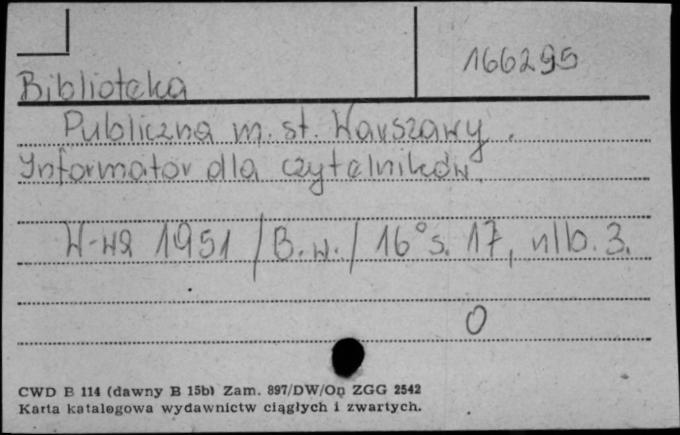 166295
Biblioteka
Publiczna m. st. Warszawy.
Informator dla czytelników.
W-wa 1951 /B.w./ 16° s. 17, nlb. 3.
O
CWD B 114 (dawny B 15b) Zam. 897/DW/Oп ZGG 2542
Karta katalogowa wydawnictw ciągłych i zwartych.